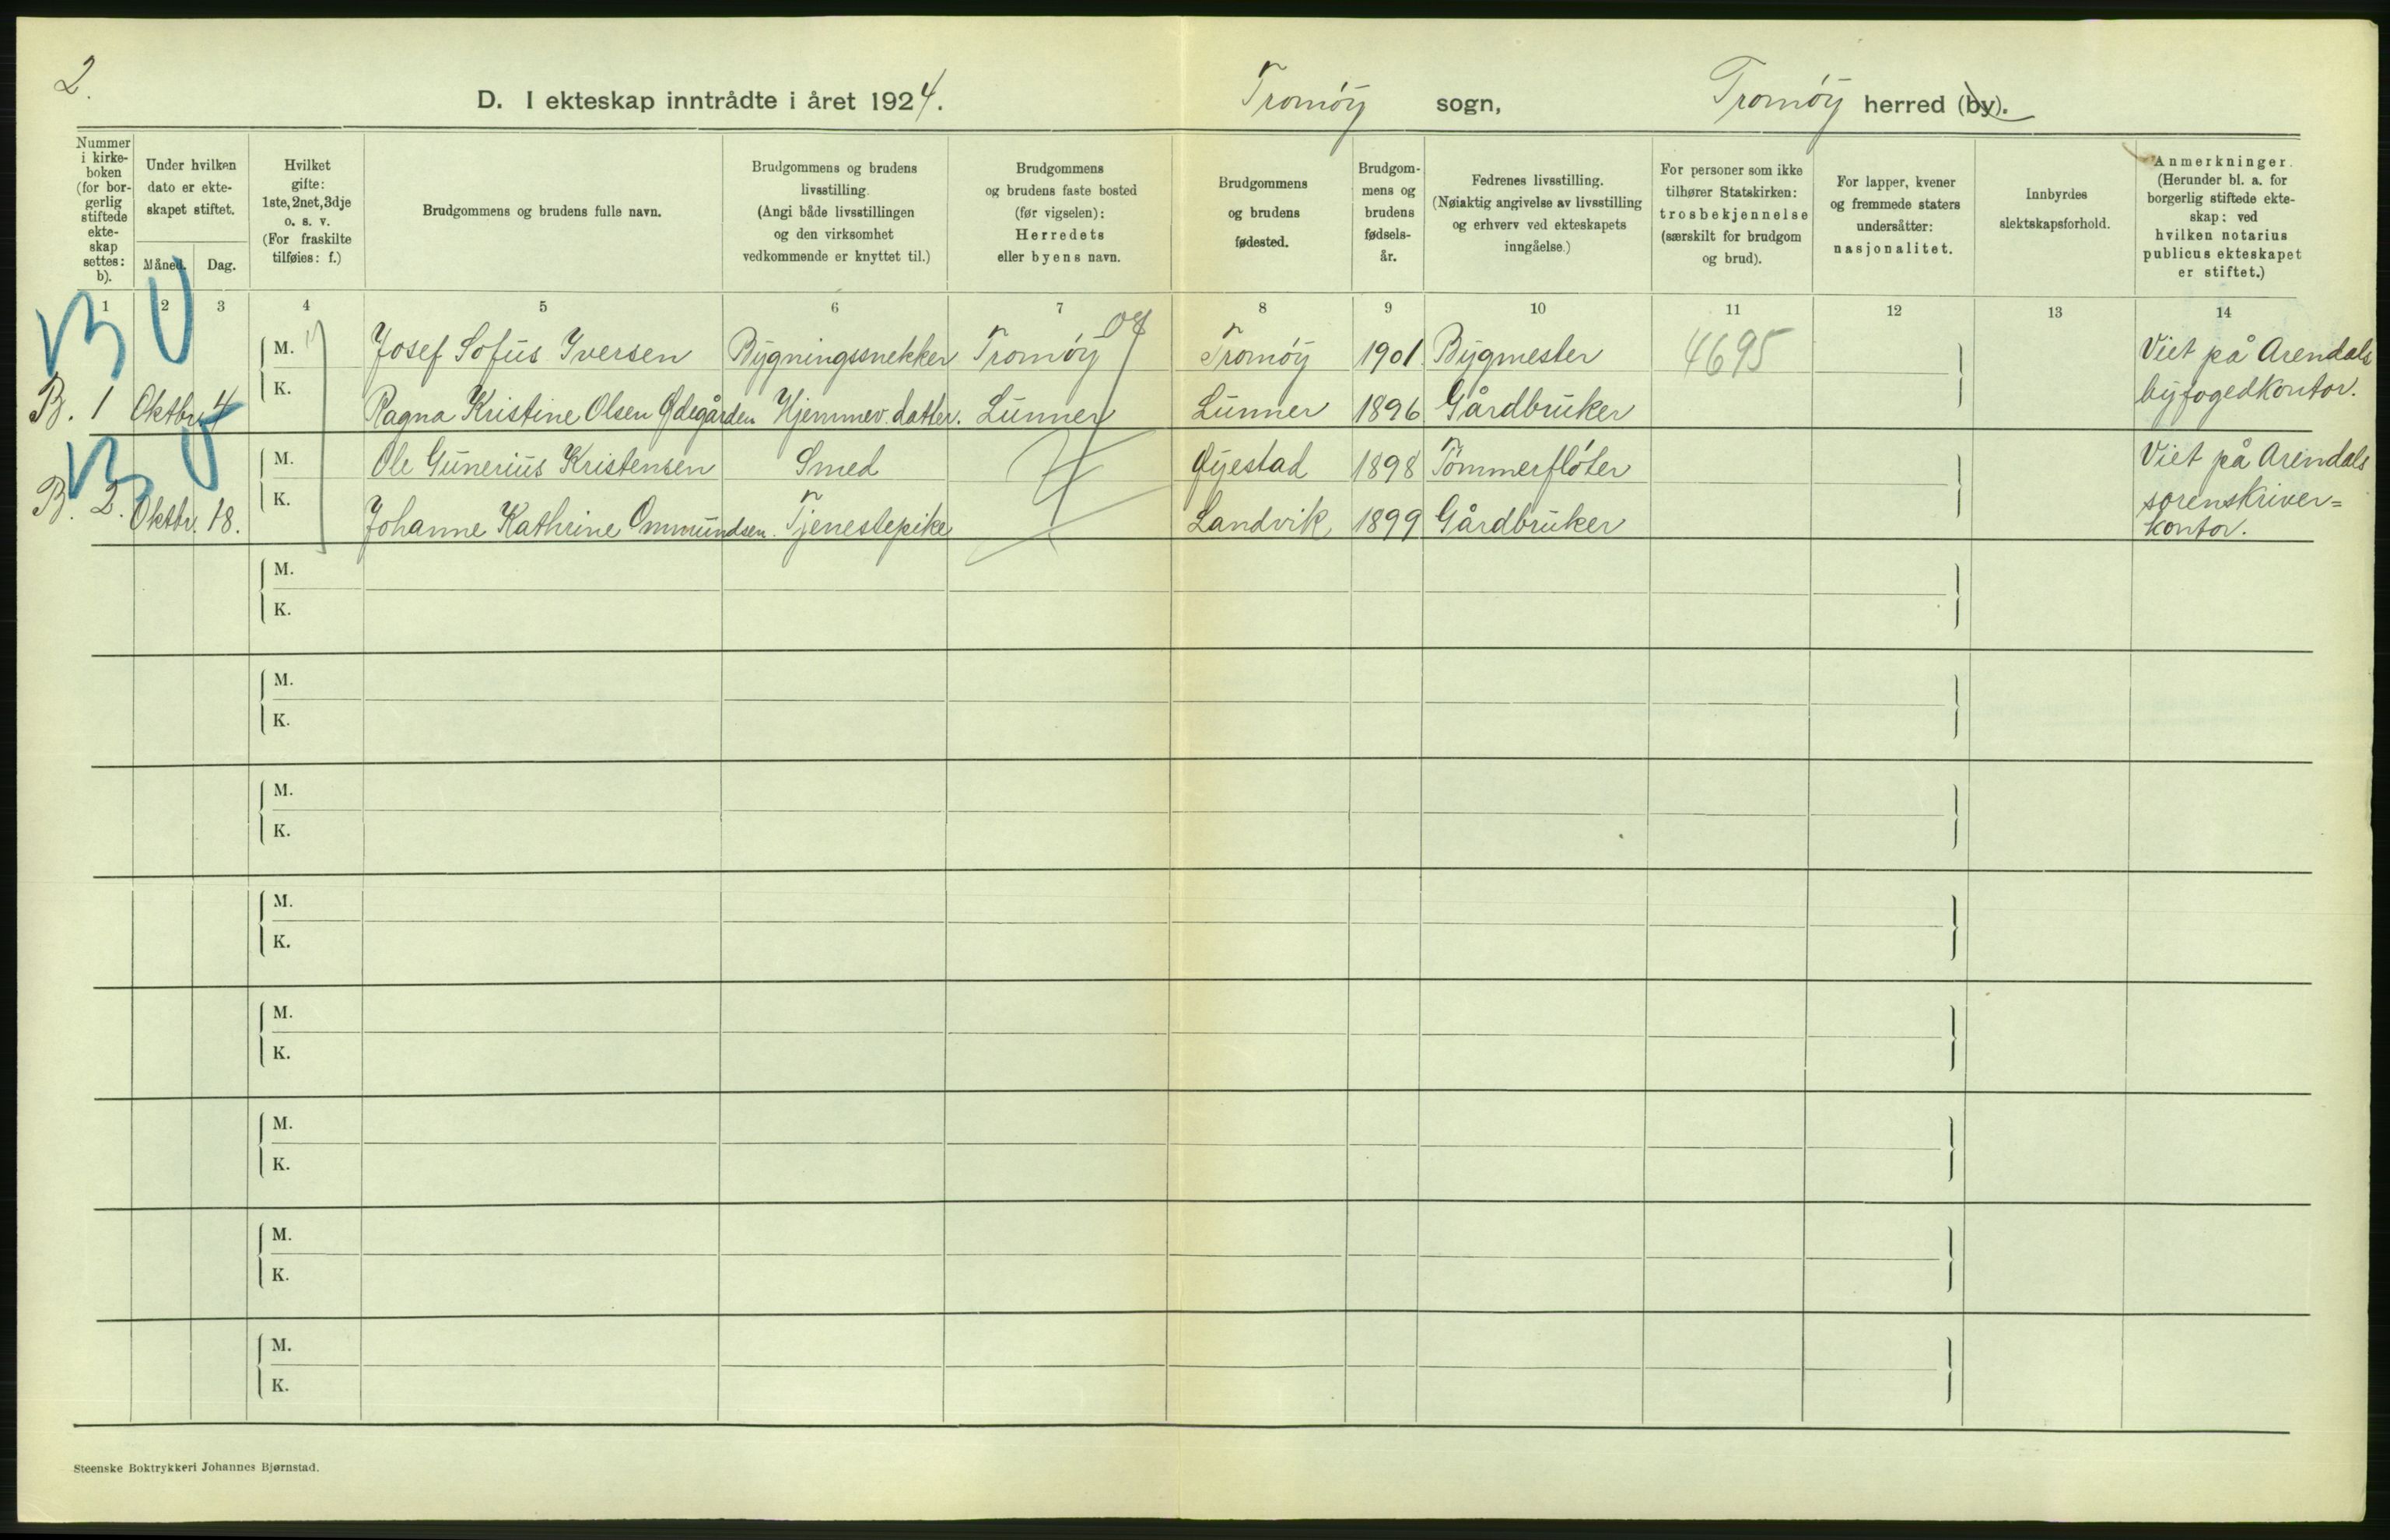 2.
D. I ekteskap inntrådte i året 1924.
Tromöy sogn,
Tromöy herred (by).
Nummer i kirkeboken (for borgerlig stiftede ekteskap settes: b).
Under hvilken dato er ekteskapet stiftet.
Måned.
Dag.
Hvilket gifte: 1ste, 2net, 3dje o. s. v. (For fraskilte tilføies: f.)
Brudgommens og brudens fulle navn.
Brudgommens og brudens livsstilling. (Angi både livsstillingen og den virksomhet vedkommende er knyttet til.)
Brudgommens og brudens faste bosted (før vigselen): Herredets eller byens navn.
Brudgommens og brudens fødested.
Brudgommens og brudens fødselsår.
Fedrenes livsstilling. (Nøiaktig angivelse av livsstilling og erhverv ved ekteskapets inngåelse.)
For personer som ikke tilhører Statskirken: trosbekjennelse (særskilt for brudgom og brud).
For lapper, kvener og fremmede staters undersåtter: nasjonalitet.
Innbyrdes slektskapsforhold.
Anmerkninger. (Herunder bl. a. for borgerlig stiftede ekteskap: ved hvilken notarius publicus ekteskapet er stiftet.)
1 2 3 4 5 6 7 8 9 10 11 12 13 14
B U
M. Josef Sofus Iversen Bygningssnekker Tromöy 08 Tromöy 1901 Bygmester 4695 Viet på Arendals
B. 1 Oktbr. 4 K. Ragna Kristine Olsen Ødegården Hjemmev. datter. Lunner Lunner 1896 Gårdbruker byfogedkontor.
B U
M. Ole Gunerius Kristensen Smed Øyestad 1898 Tömmerflöter Viet på Arendals
B. 2. Oktbr. 18. K. Johanne Kathrine Ommundsen. Tjenestepike Landvik 1899 Gårdbruker sorenskriver=
kontor.
M.
K.
M.
K.
M.
K.
M.
K.
M.
K.
M.
K.
M.
K.
M.
K.
Steenske Boktrykkeri Johannes Bjørnstad.